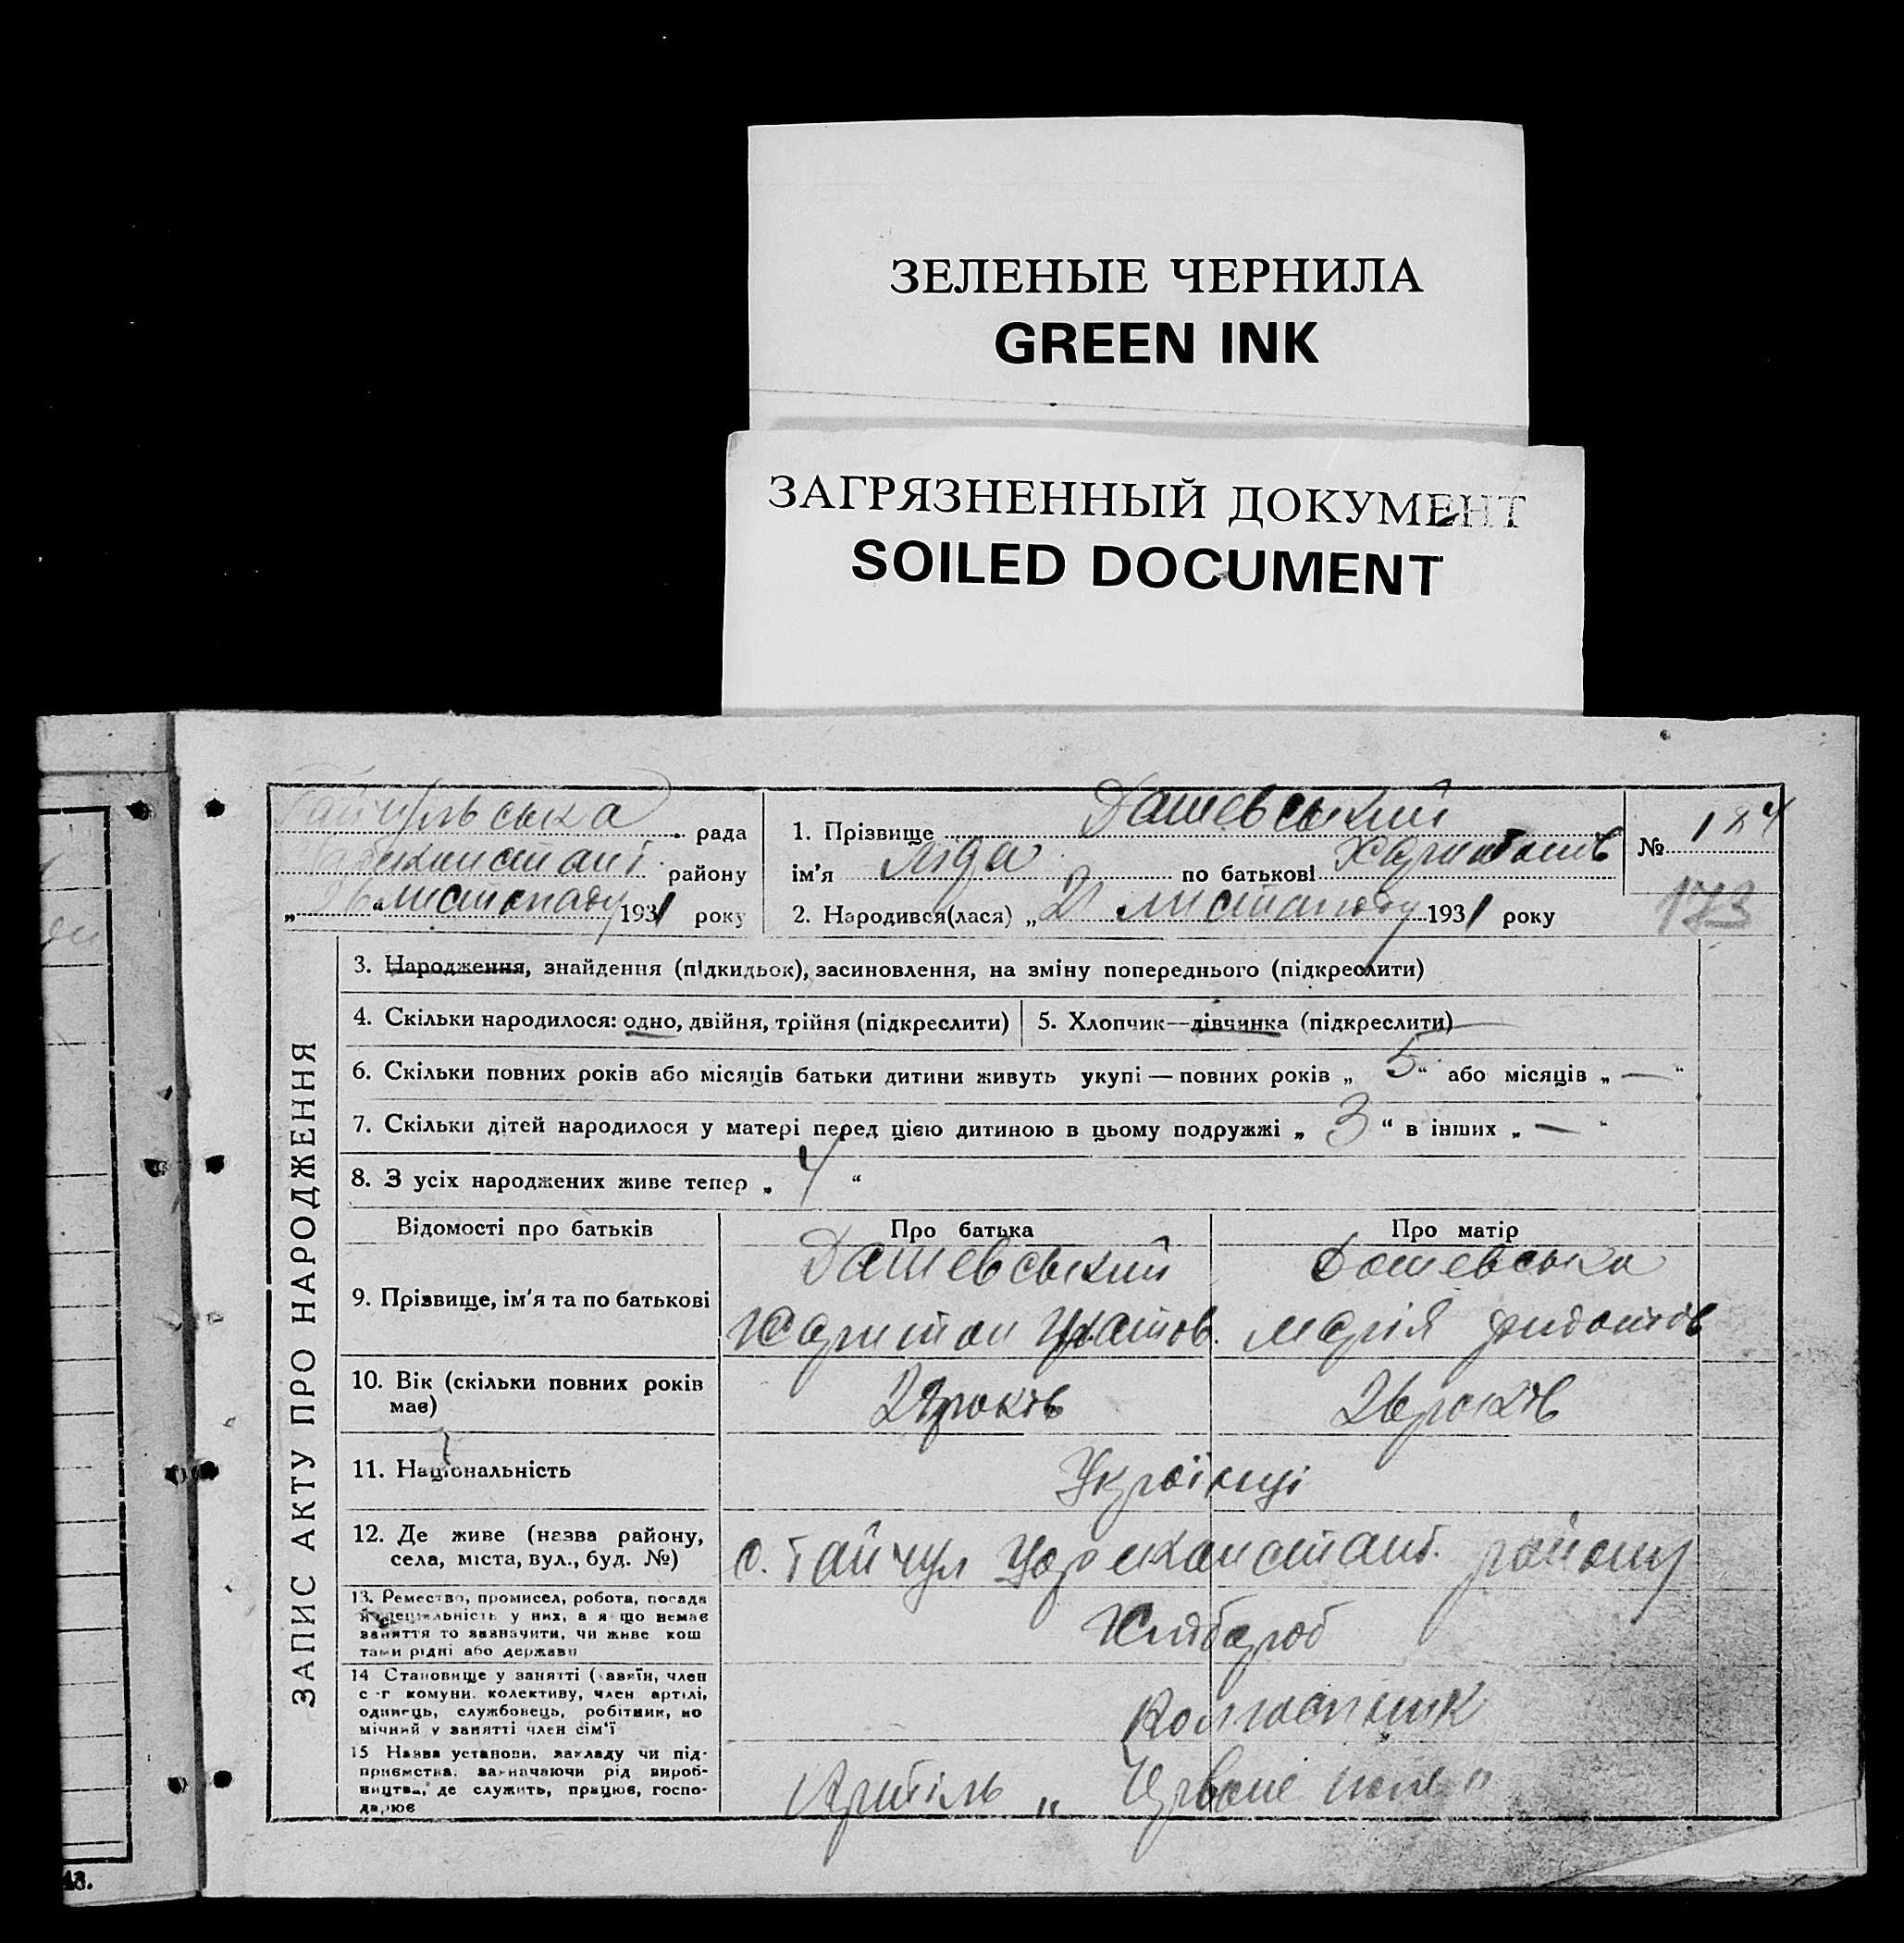 ЗЕЛЕНЫЕ ЧЕРНИЛА
GREEN INK
ЗАГРЯЗНЕННЫЙ ДОКУМЕНТ
SOILED DOCUMENT
Гайчульська рада
району
„26“ листопаду 1931 року
1. Прізвище Дашевський
ім'я Ліда по батькові Харитонів
2. Народився(лася) „21 листопаду 1931 року
№ 184
173
ЗАПИС АКТУ ПРО НАРОДЖЕННЯ
3. Народження, знайдення (підкидьок), засиновлення, на зміну попереднього (підкреслити)
4. Скільки народилося: одно, двійня, трійня (підкреслити)
5. Хлопчик—дівчинка (підкреслити)
6. Скільки повних років або місяців батьки дитини живуть укупі — повних років „ 5 “ або місяців „ — “
7. Скільки дітей народилося у матері перед цією дитиною в цьому подружжі „ 3 “ в інших „ — “
8. З усіх народжених живе тепер „ 4 “
Відомості про батьків
Про батька
Про матір
9. Прізвище, ім'я та по батькові
Дашевський
Харитон
Дашевська
Марія
10. Вік (скільки повних років має)
років
26 років
11. Національність
Українці
12. Де живе (назва району,
села, міста, вул., буд. №)
с. Гайчул Царекостянт. району
13. Ремество, промисел, робота, посада
й спеціяльність у них, а якщо немає
заняття то зазначити, чи живе кош
тами рідні або держави
Хлібороб
14 Становище у занятті (хазяїн, член
с-г комуни, колективу, член артілі,
одинець, службовець, робітник, по
мічний у занятті член сім'ї
Колгоспник
15 Назва установи, закладу чи під-
приємства, зазначаючи рід вироб-
ництва, де служить, працює, госпо-
дарює
Артіль „Червоне поле"
13.